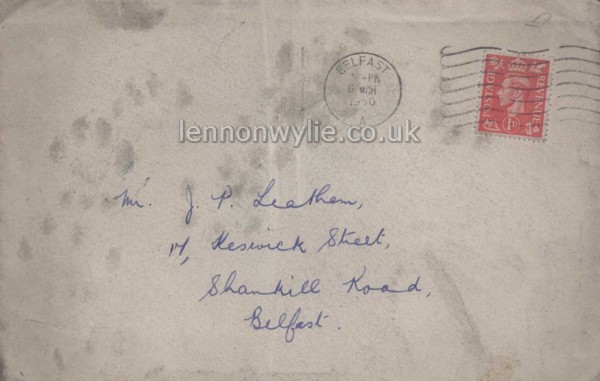 BELFAST
-PM
6 MCH
1950
A
POSTAGE
REVENUE
1D
lennonwylie.co.uk
Mr. J. P. Leathem,
17, Keswick Street,
Shankill Road,
Belfast.